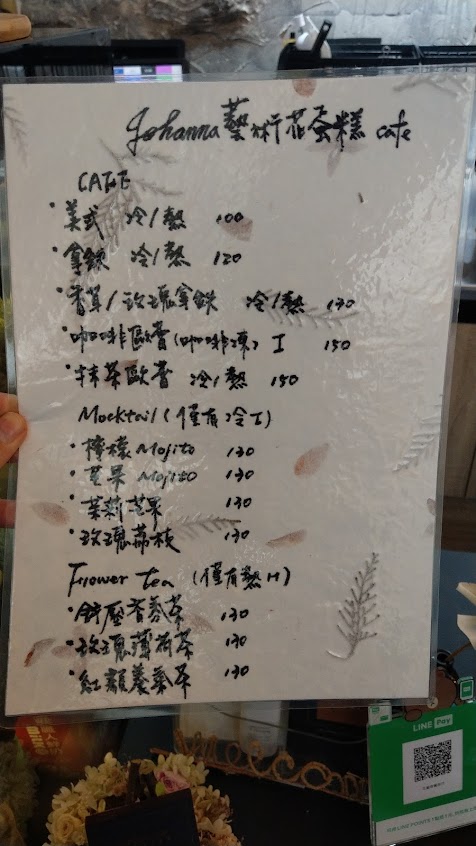 Johanna藝術花蛋糕 cafe
CAFE
・美式 冷/熱 100
・拿鐵 冷/熱 120
・香草/玫瑰拿鐵 冷/熱 130
・咖啡歐蕾(咖啡凍) I 150
・抹茶歐蕾 冷/熱 150
Mocktail (僅有冷I)
・檸檬 Mojito 130
・芒果 Mojito 130
・茉莉芒果 130
・玫瑰荔枝 130
Flower tea (僅有熱H)
・紓壓香蔘茶 130
・玫瑰薄荷茶 130
・紅顏養氣茶 130
LINE Pay